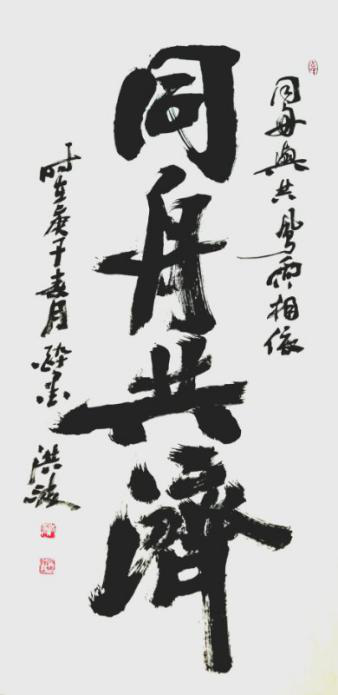 同舟與共風雨相依
同舟共濟
时在庚子春月醉墨 洪波